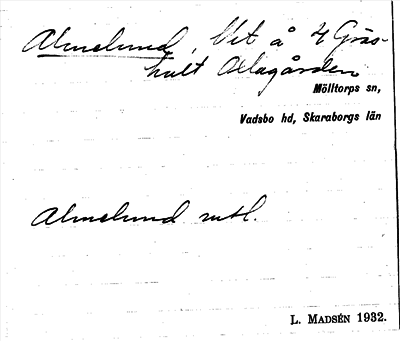 Almelund, Vet å 4 Gräs-
hult Allagården
Mölltorps sn,
Vadsbo hd, Skaraborgs län
Almelund mtl.
L. MADSÉN 1932.